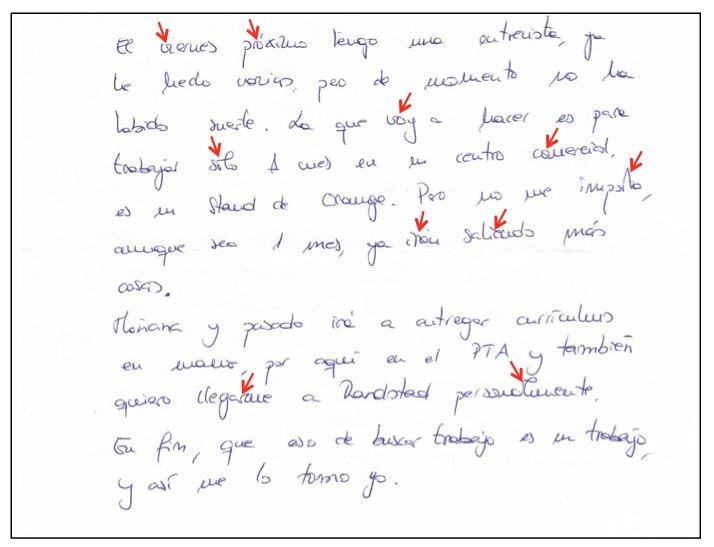 El viernes próximo tengo una entrevista, ya
he hecho varias, pero de momento no ha
habido suerte. La que voy a hacer es para
trabajar sólo 1 mes en un centro comercial,
es un Stand de Orange. Pero no me importa,
aunque sea 1 mes, ya irán saliendo más
cosas.
Mañana y pasado iré a entregar currículums
en mano, por aquí en el PTA y también
quiero llegarme a Randstad personalmente.
En fin, que eso de buscar trabajo es un trabajo,
y así me lo tomo yo.